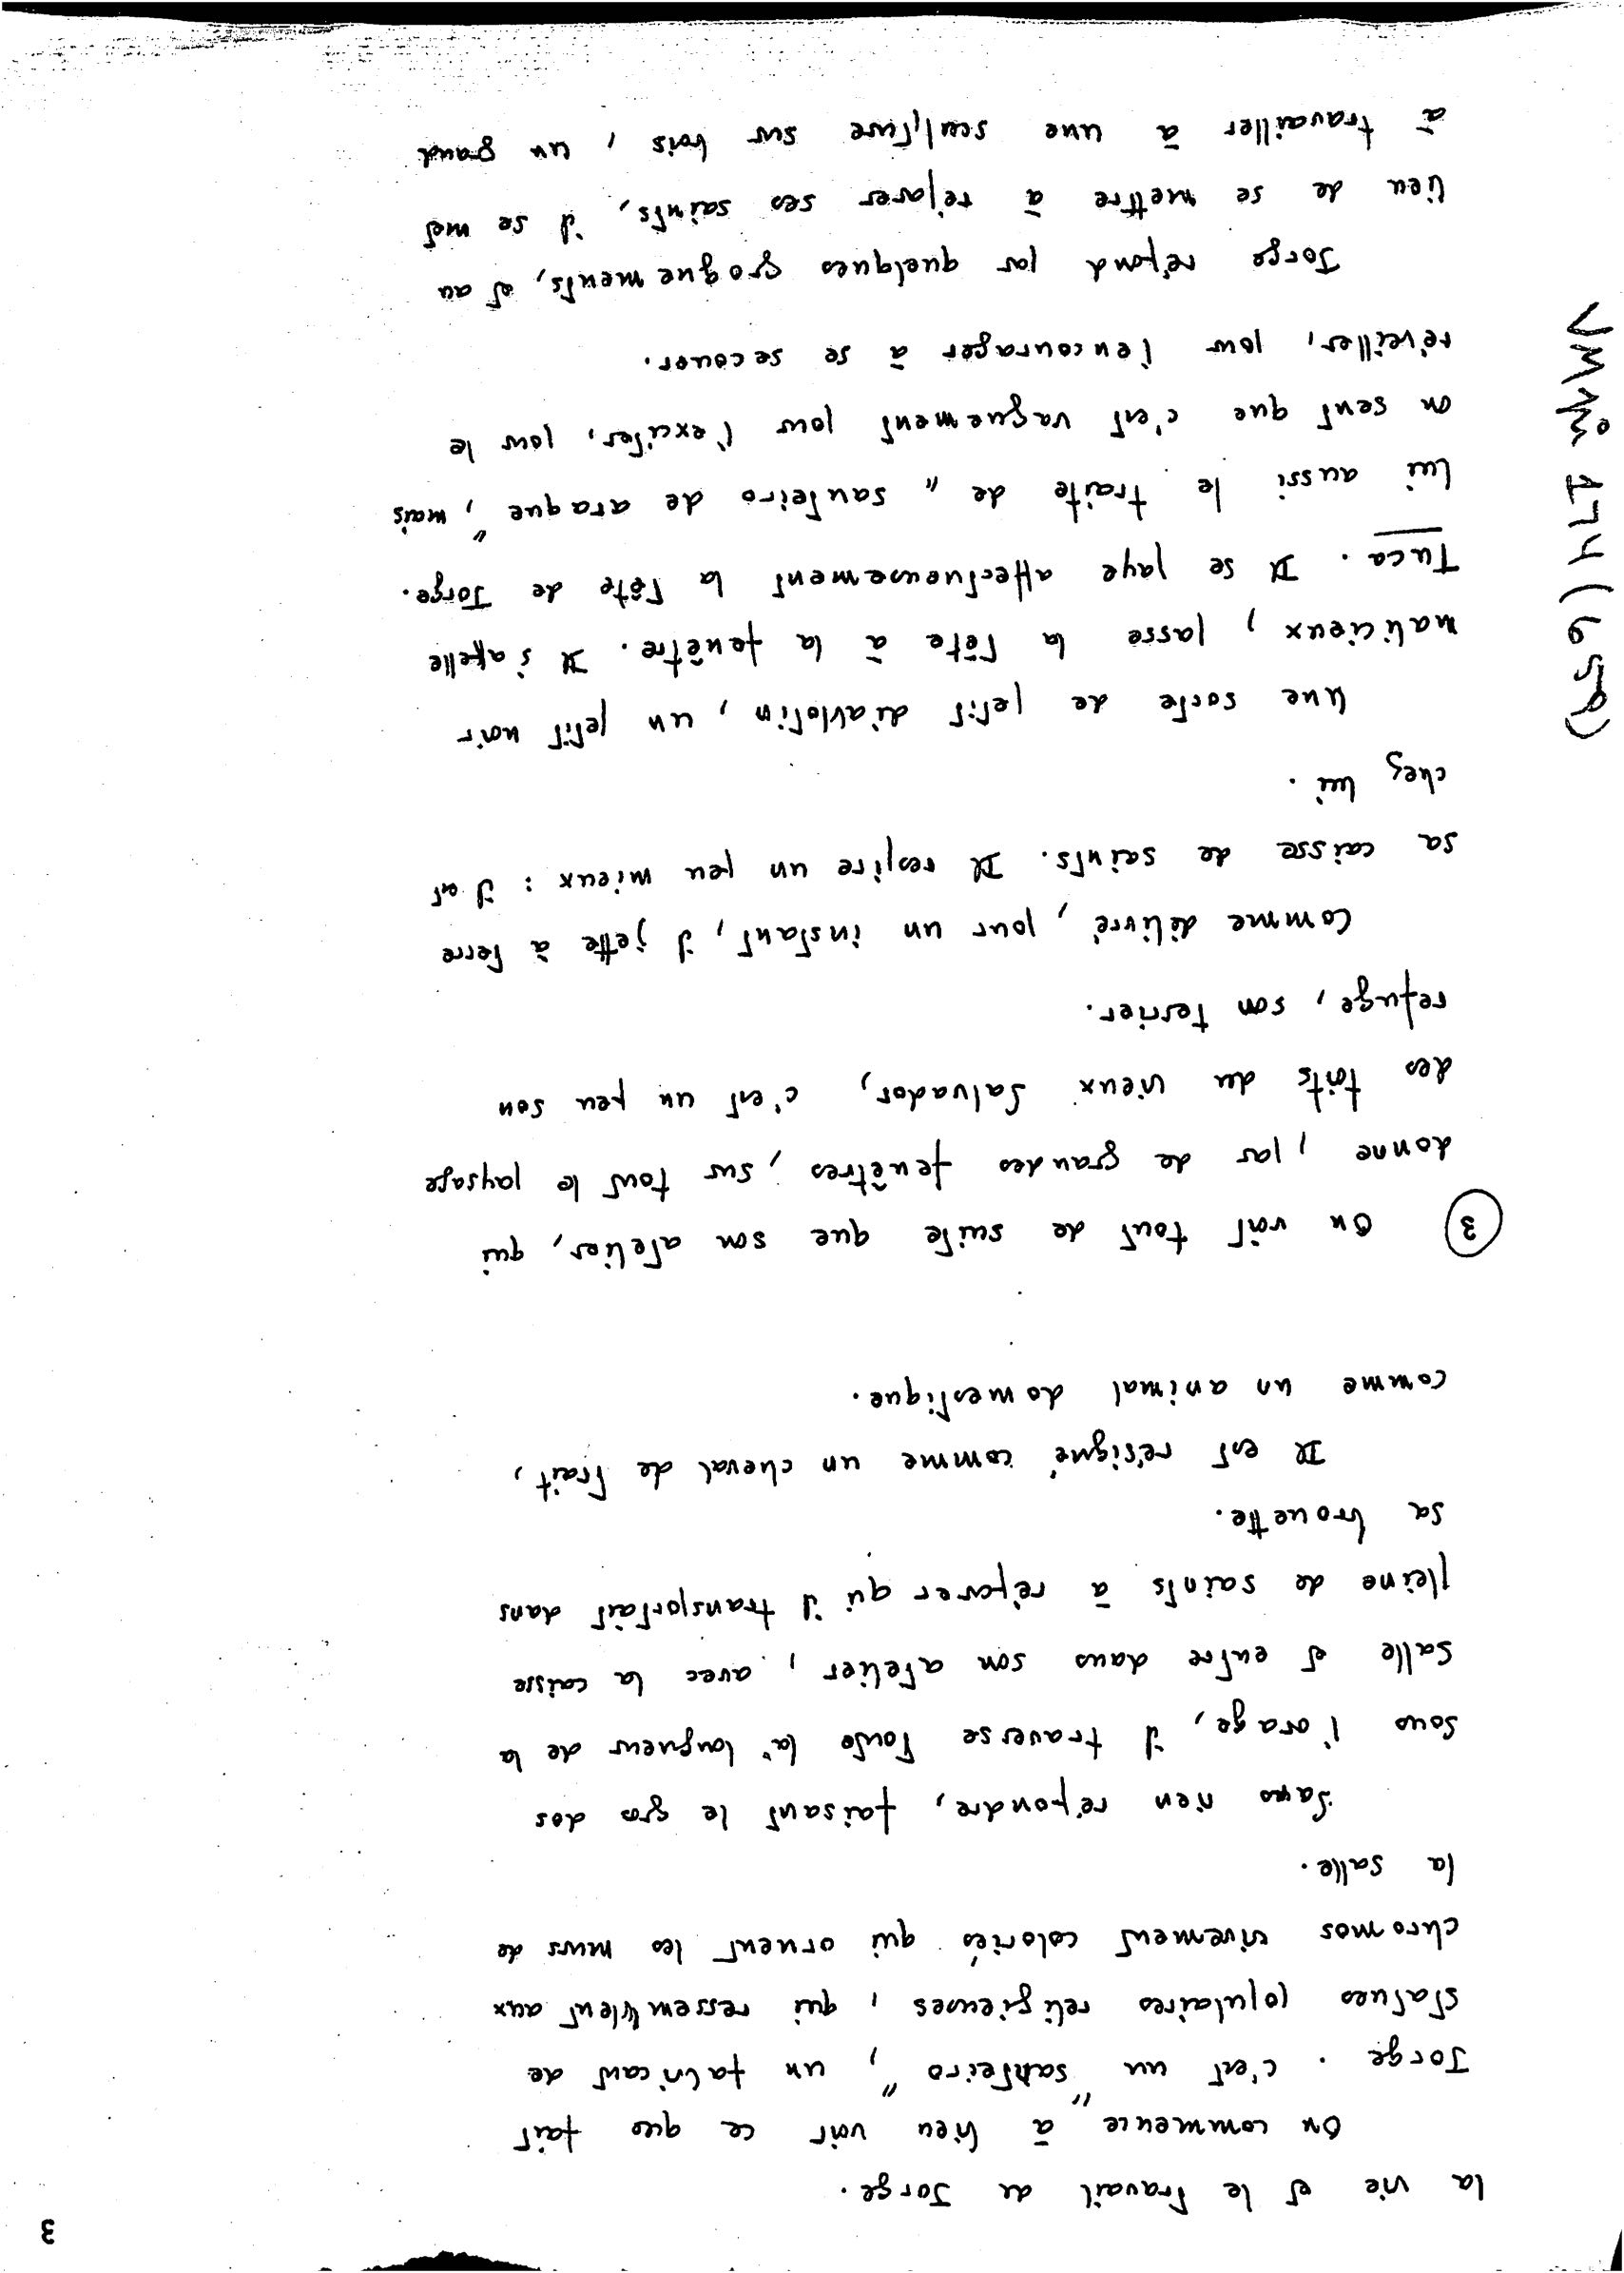 3
la vie et le travail de Jorge.
On commence à bien voir ce que fait
Jorge. C'est un "santeiro", un fabricant de
statues populaires religieuses, qui ressemblent aux
chromos vivement coloriés qui ornent les murs de
la salle.
Sans rien répondre, faisant le gros dos
sous l'orage, il traverse toute la longueur de la
salle et entre dans son atelier, avec la caisse
pleine de saints à réparer qu'il transportait dans
sa brouette.
Il est résigné comme un cheval de trait,
comme un animal domestique.
3 On voit tout de suite que son atelier, qui
donne, par de grandes fenêtres, sur tout le paysage
des toits du vieux Salvador, c'est un peu son
refuge, son terrier.
Comme délivré, pour un instant, il jette à terre
sa caisse de saints. Il respire un peu mieux : il est
chez lui.
Une sorte de petit diablotin, un petit noir
malicieux, passe la tête à la fenêtre. Il s'appelle
Tuca. Il se paye affectueusement la tête de Jorge.
Lui aussi le traite de "santeiro de araque", mais
on sent que c'est vaguement pour l'exciter, pour le
réveiller, pour l'encourager à se secouer.
Jorge répond par quelques grognements, et au
lieu de se mettre à réparer ses saints, il se met
à travailler à une sculpture sur bois, un grand
174 (659)